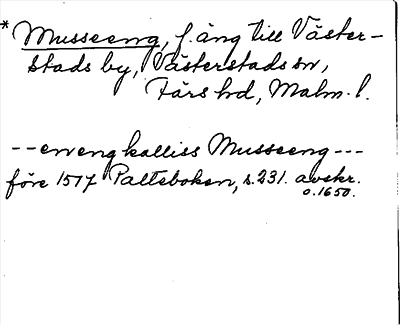 * Musseeng, f. äng till Väster-
stads by, Västerstads sn,
Färs hd, Malm. l.
-- en eng kalliss Musseeng ---
före 1517 Palteboken, s. 231. avskr.
o. 1650.